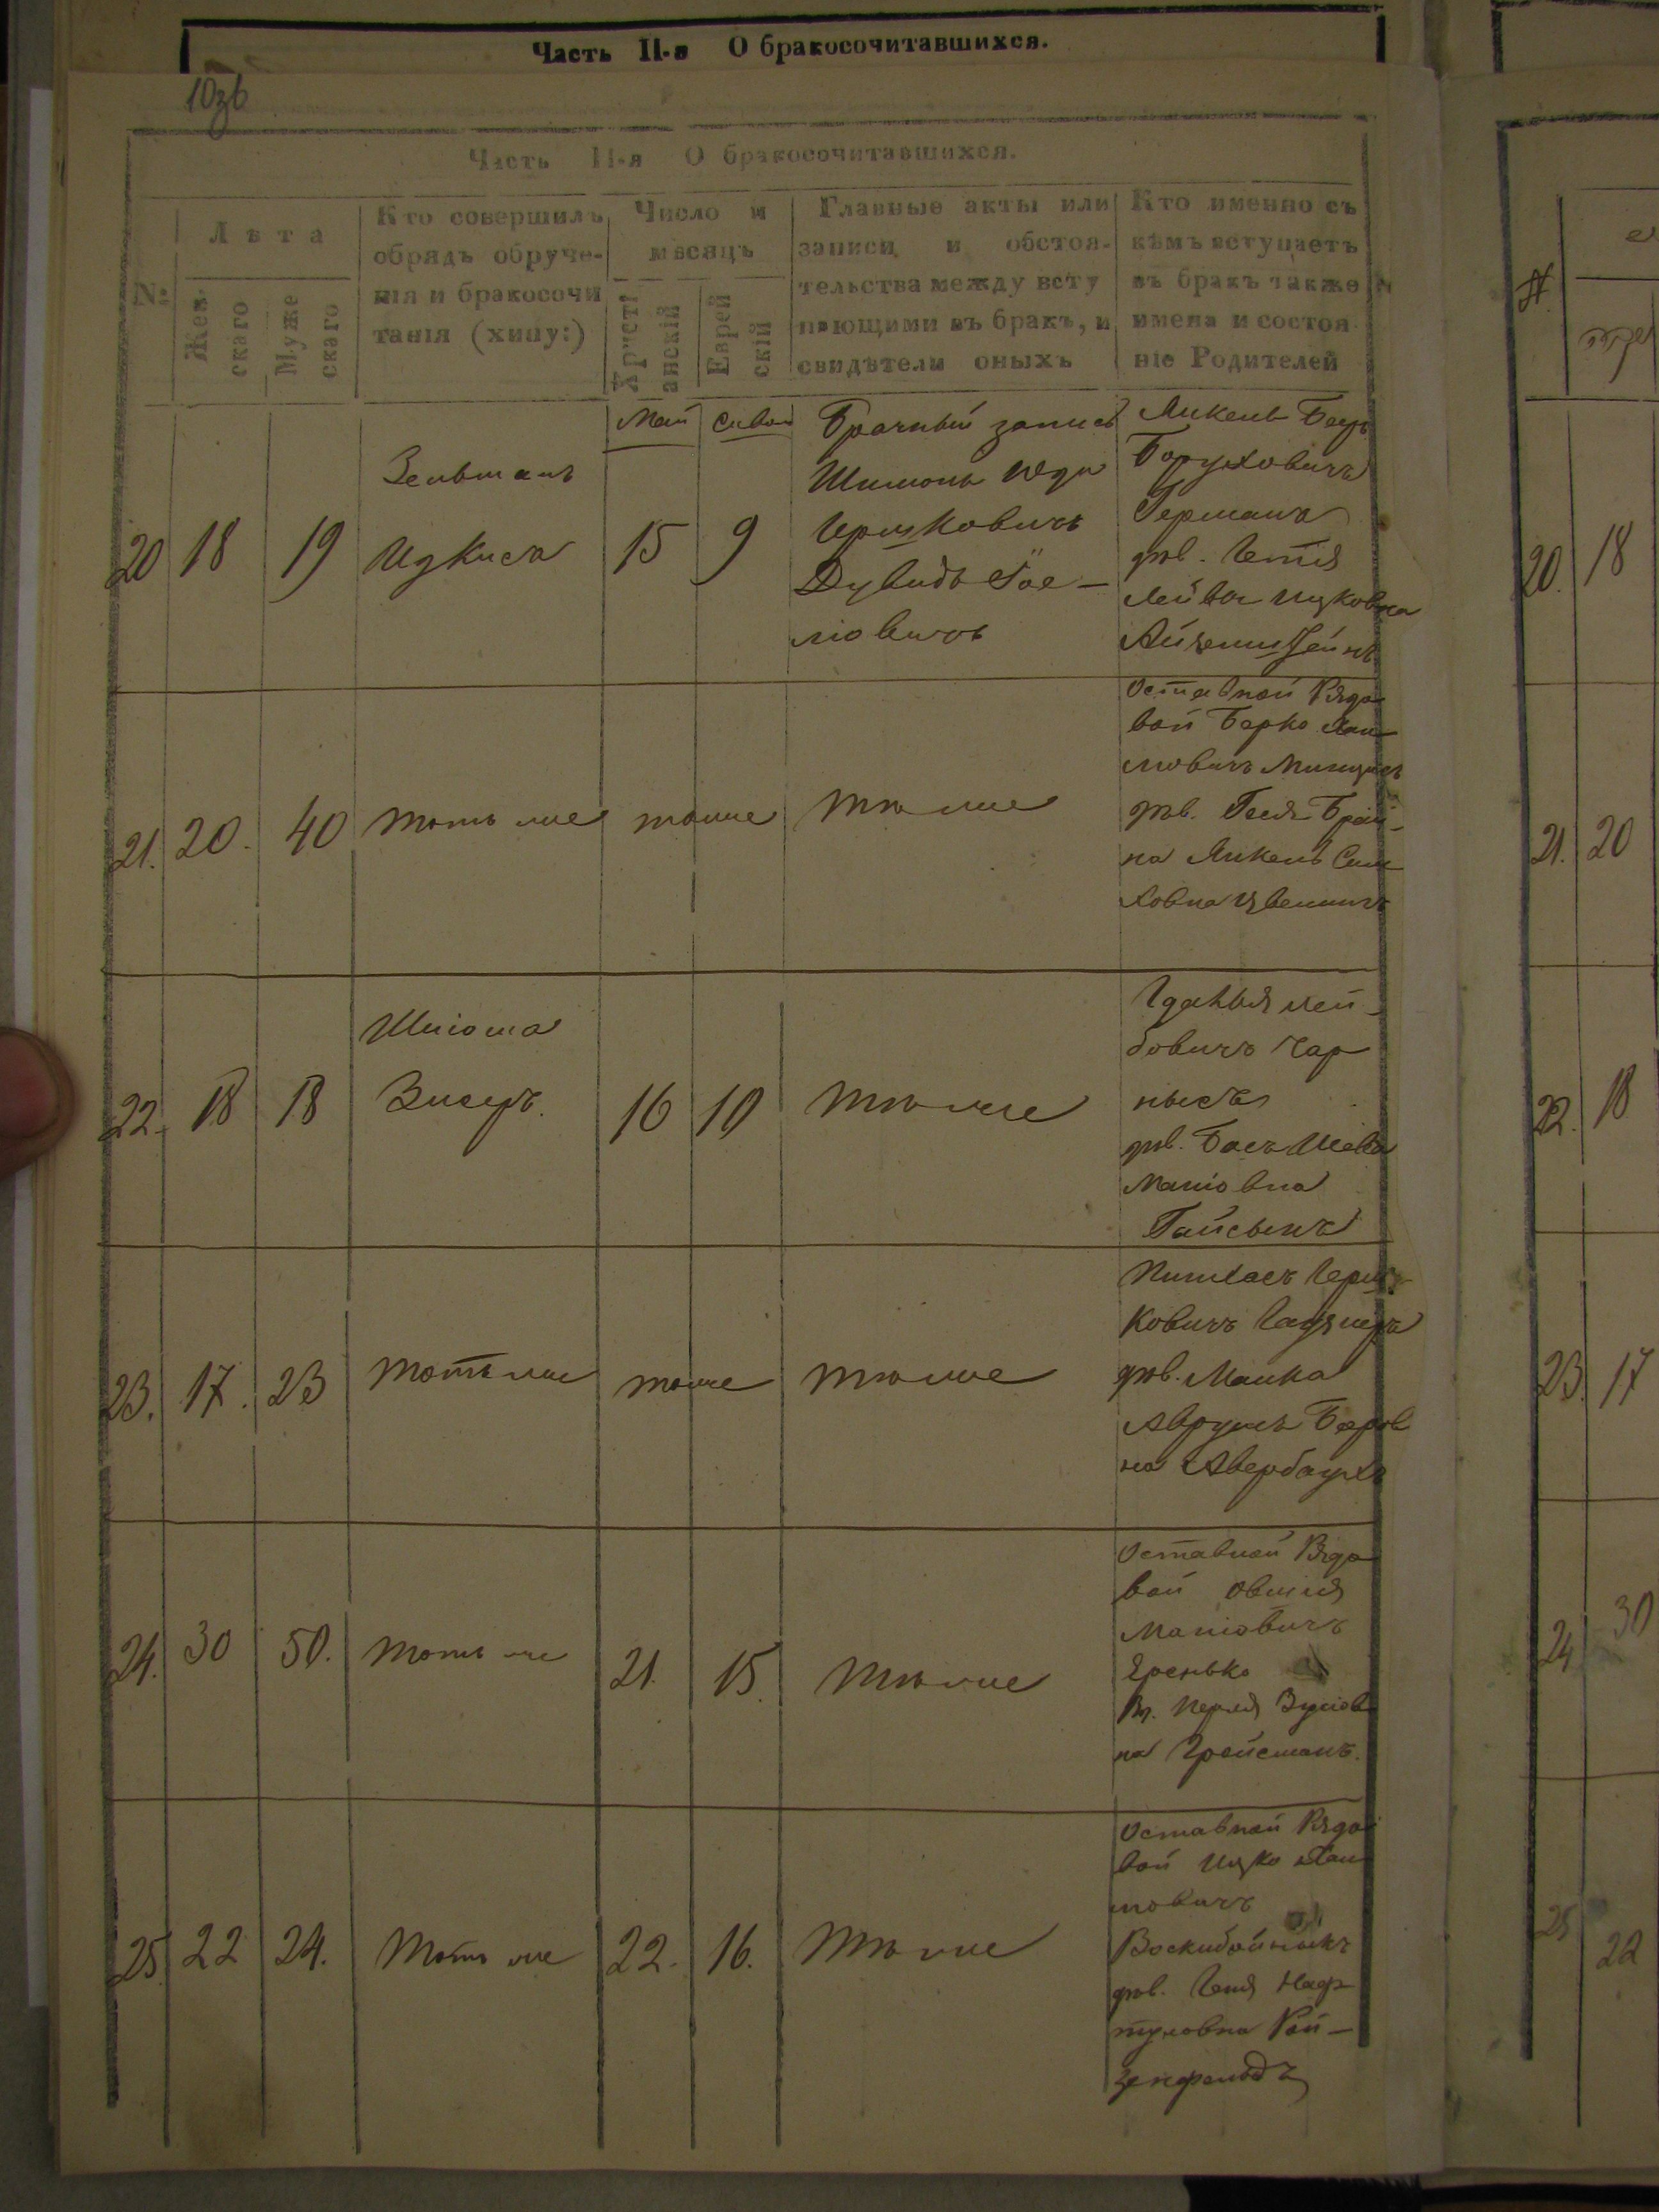 Часть II-я О бракосочитавшихся.
103б
Часть II-я О бракосочитавшихся.
№
Лѣта
Жен-
скаго
Муже
скаго
Кто совершилъ
обрядъ обруче-
нія и бракосочи
танія (хипу:)
Число и
мѣсяцъ
Христі
анскій
Еврей
скій
Главные акты или
записи и обстоя-
тельства между всту
пающими въ бракъ, и
свидѣтели оныхъ
Кто именно съ
кѣмъ вступаетъ
въ бракъ также
имена и состоя
ніе Родителей
20
18
19
Зельманъ
Ицкисъ
Май
15
Сивон
9
Брачный запись
Шимонъ Юдк
Гершковичъ
Дувидъ Іое-
ліовичъ
Янкель Беръ
Боруховичъ
Германъ
дѣв. Гетля
Лейва Ицковна
Айзенштейнъ
21.
20.
40
тотъ же
тоже
тѣ же
Оставной Рядо
вой Берко Хаи
мовичъ
дѣв. Песя Брай-
на Янкель Сим
ховна
22.
18
18
Шліома
Зисеръ.
16
10
тѣ же
Гдалья Лей-
бовичъ Чар
нысъ
дѣв. Бася Шева
Маніовна
Гайсынъ
23.
17.
23
тотъ же
тоже
тѣ же
Пинхасъ Герш-
ковичъ
дѣв. Манка
Аврумъ Беров
на Авербаухъ
24.
30
50.
тотъ же
21.
15.
тѣ же
Оставной Рядо
вой Овшія
Маніовичъ
Яренько
Вд. Перля Зусіов
на Гройсманъ.
25
22
24.
тотъ же
22.
16.
тѣ же
Оставной Рядо
вой Ицко Хаи
мовичъ
Воскибойникъ
дѣв. Геня Наф
туловна Рой-
зенфельдъ
20.
18
21.
20
22.
18
23.
17
24
30
25
22